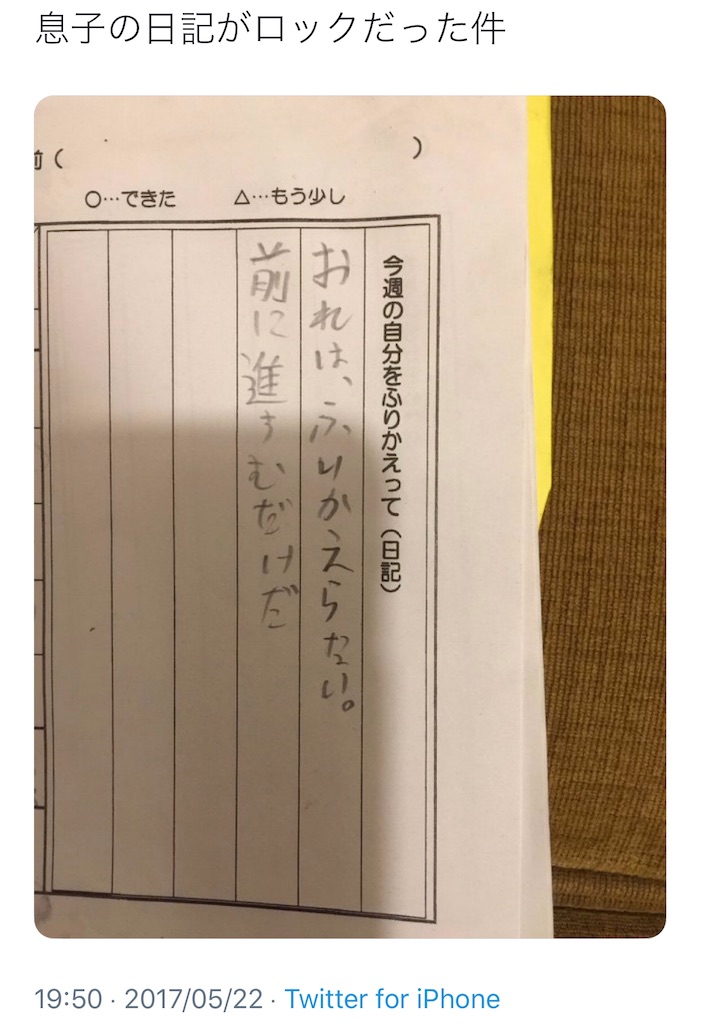 息子の日記がロックだった件
前（　　）
○…できた　△…もう少し
今週の自分をふりかえって（日記）
おれは、ふりかえらない。
前に進すむだけだ
19:50 · 2017/05/22 · Twitter for iPhone